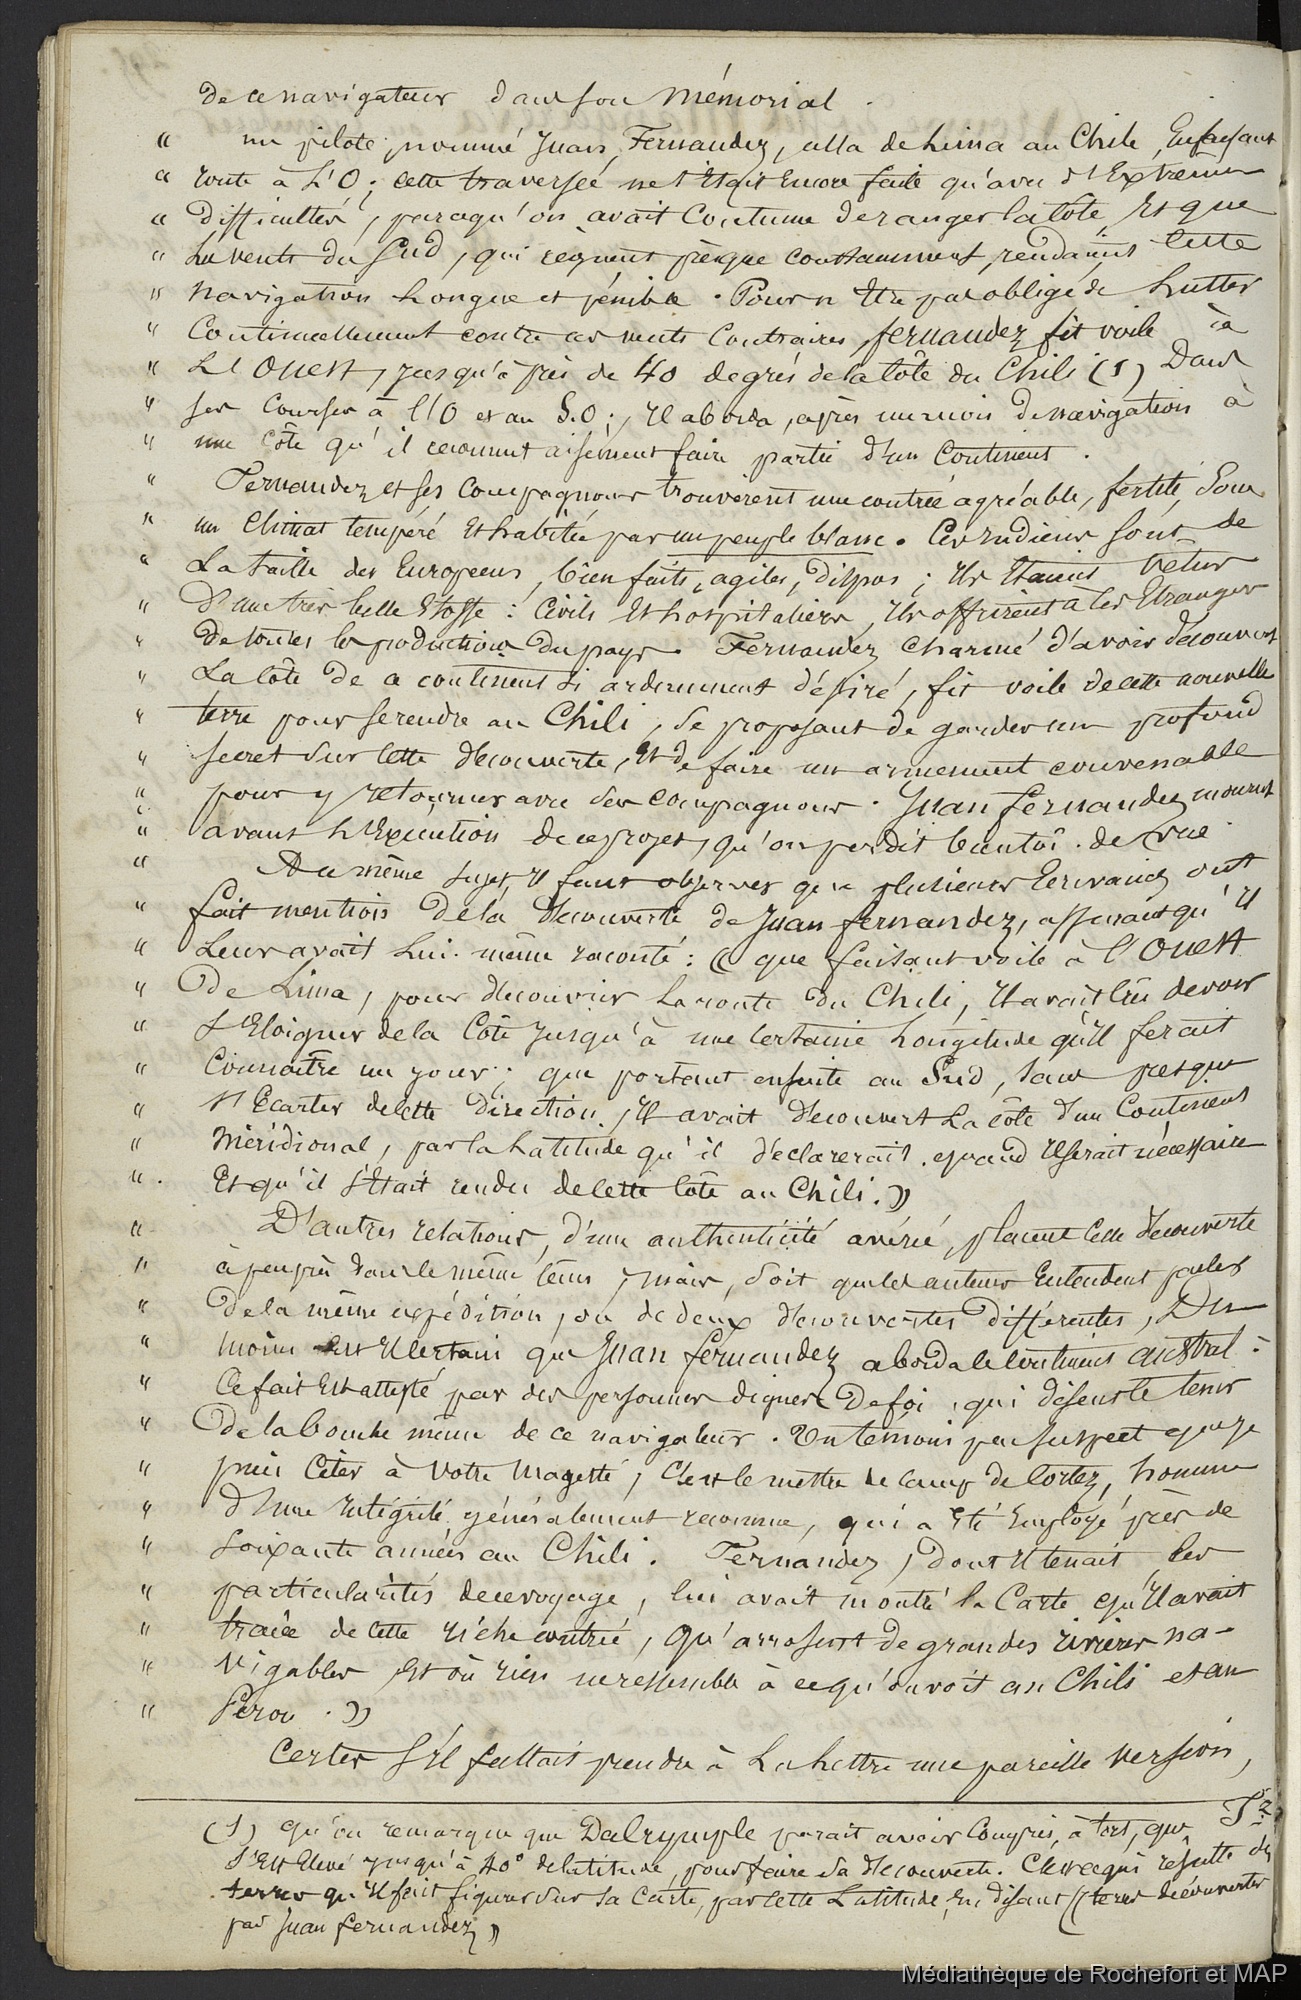 de ce navigateur dans son Mémorial.
" un pilote, nommé Juan Fernandez, alla de Lima au Chile, En faisant
" route à L'O; cette traversée ne s'Etait Encore faite qu'avec d'Extremes
" difficultés, parcequ'on avait Coutume de ranger la Côte, Et que
" Les vents du Sud, qui règnent presque constamment, rendaient Cette
" Navigation Longue et pénible. Pour n'Etre pas obligé de Lutter
" Continuellement contre ces vents Contraires, fernandez fit voile à
" L'Ouest, jusqu'à près de 40 degrés de la Côte du Chili (1) Dans
" ses Courses à l'O et au S.O; Il aborda, après un mois de navigation à
" une Côte qu'il reconnut aisément faire partie d'un Continent.
" Fernandez et ses Compagnons trouvèrent une contrée agréable, fertile, Sous
" un Climat tempéré Et habitée par un peuple blanc. Ces Indiens sont de
" La taille des Européens, bien faits, agiles, dispos; Ils Etaient Vetus
" D'une très belle Etoffe: Civils Et hospitaliers, Ils offrirent à les Etrangers
" De toutes les productions Du pays. Fernandez Charmé d'avoir découvert
" La Côte De ce continent Si ardemment désiré, fit voile de cette nouvelle
" terre pour se rendre au Chili, Se proposant de garder un profond
" Secret Sur Cette découverte, Et de faire un armement convenable
" pour y retourner avec Ses compagnons. Juan Fernandez mourut
" avant L'Exécution de ce projet, qu'on perdit bientôt de vue.
" Au même Sujet, Il faut observer que plusieurs Ecrivains ont
" fait mention De la découverte de Juan fernandez, assurant qu'Il
" Leur avait Lui-même raconté: (( que faisant voile à l'Ouest
" De Lima, pour découvrir La route du Chili, Il avait Crû devoir
" S'Eloigner de la Côte jusqu'à une Certaine Longitude qu'Il ferait
" Connaître un jour; que portant ensuite au Sud, Sans presque
" s'Ecarter de Cette direction, Il avait découvert La côte d'un Continent
" Méridional, par la Latitude qu'il déclarerait quand Il serait nécessaire
" Et qu'il S'Etait rendu de Cette Côte au Chili. ))
" D'autres relations, d'une authenticité avérée, placent Cette découverte
" à peu près dans le même tems; mais, Soit que les auteurs Entendent parler
" De la même expédition, ou de deux découvertes différentes, Du
" moins Est Il Certain que Juan fernandez aborda le Continent austral:
" Ce fait Est attesté par des personnes dignes De foi, qui disent le tenir
" De la bouche même de ce navigateur. Un témoin peu suspect que je
" puis Citer à Votre Magesté, C'Est le mettre de Camp de Cortez, homme
" d'une Intégrité généralement reconnue, qui a Eté Employé près de
" Soixante années au Chili. Fernandez, dont Il tenait, les
" particularités de ce voyage, lui avait montré la Carte qu'Il avait
" tracée de Cette riche contrée, qu'arrosent de grandes rivières na-
" vigables, Et où rien ne ressemble à ce qu'on voit au Chili et au
" Perou. ))
Certes S'Il fallait prendre à La Lettre une pareille version,
(1) qu'on remarque que Dalrymple parait avoir Compris, à tort, que Fz
S'Est Elevé jusqu'à 40° de latitude, pour faire Sa découverte. C'Est ce qui résulte des
terres qu'Il fait figurer Sur Sa Carte, par Cette Latitude, En disant (( terres découvertes
par Juan fernandez ))
Médiathèque de Rochefort et MAP